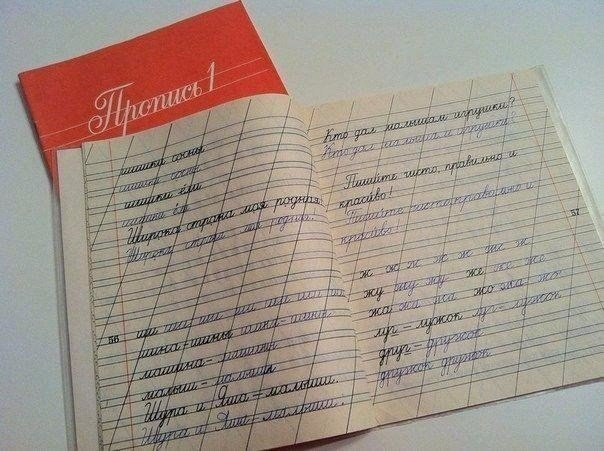 Пропись 1
шишки сосны
шишки сосны
шишки ели
шишки ели
Широка страна моя родная.
Широка страна моя родная.
ши ши ши ши ши ши ши
56
шина – шины шина – шины
машина – машины
малыш – малыши
Шура и Яша – малыши.
Шура и Яша – малыши.
Кто дал малышам игрушки?
Кто дал малышам игрушки?
Пишите чисто, правильно и
красиво!
Пишите чисто, правильно и
красиво!
57
ж ж ж ж ж ж ж
жу жу жу же же же
жа жа жа жо жа жо
луг – лужок луг – лужок
друг – дружок
дружок дружок